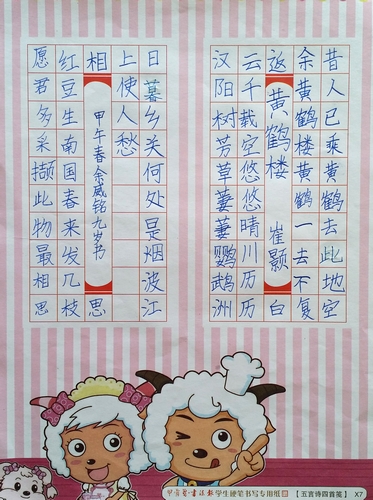 昔人已乘黄鹤去此地空
余黄鹤楼黄鹤一去不复
返
黄鹤楼 崔颢
白
云千载空悠悠晴川历历
汉阳树芳草萋萋鹦鹉洲
日暮乡关何处是烟波江
上使人愁
相
甲午春余威铭九岁书
思
红豆生南国春来发几枝
愿君多采撷此物最相思
学生硬笔书写专用纸 【五言诗四首笺】 X7